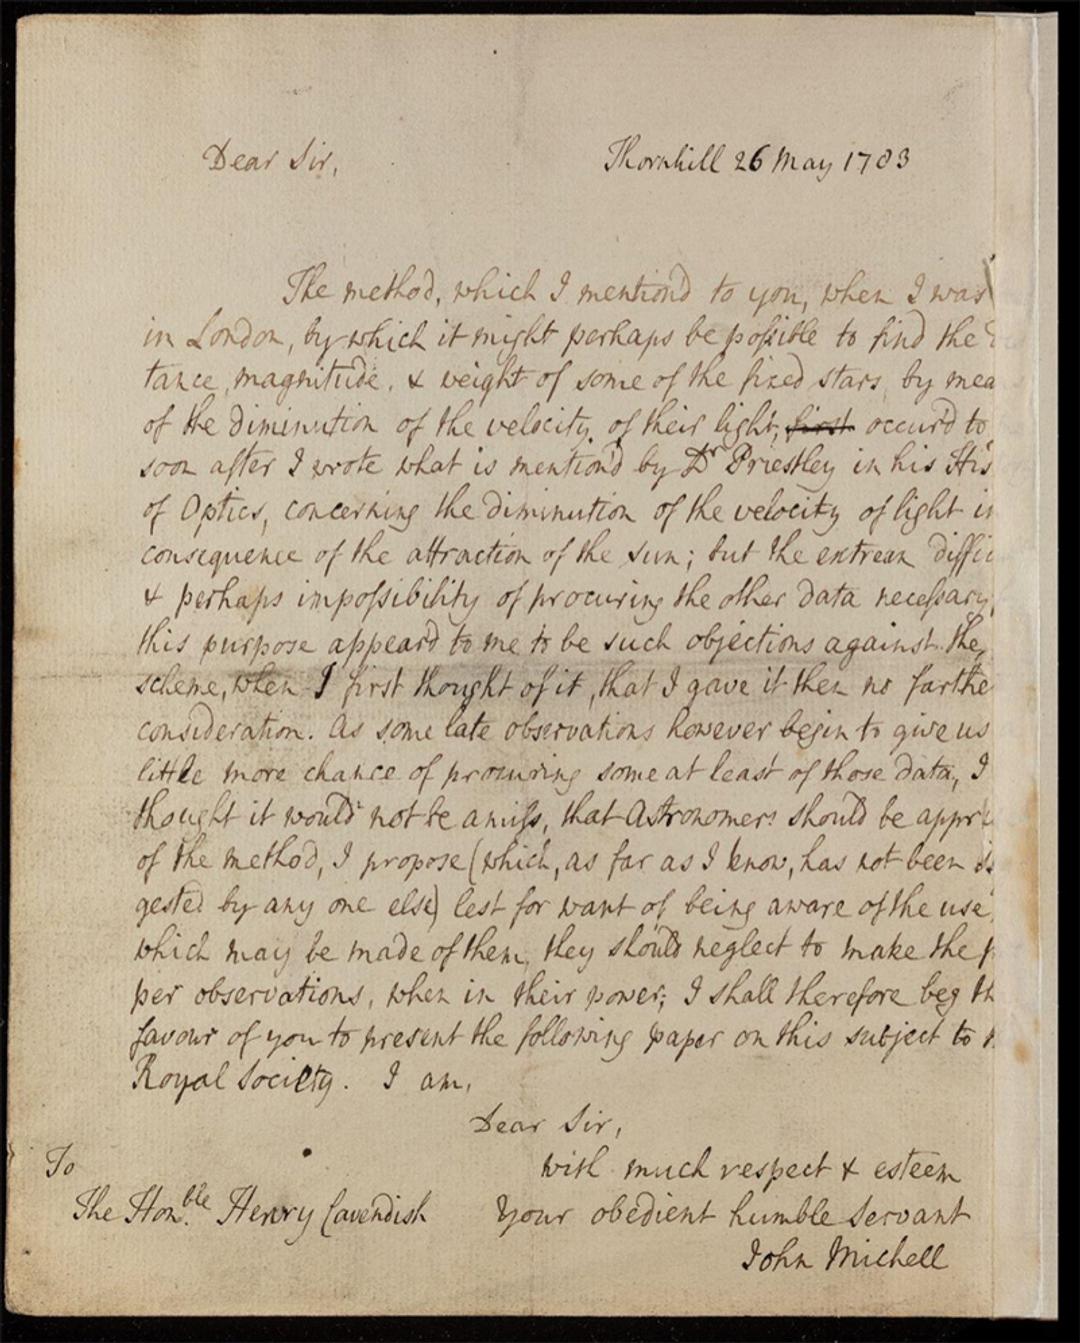 Dear Sir, Thornhill 26 May 1783
The method, which I mention'd to you, when I was
in London, by which it might perhaps be possible to find the
tance, magnitude, & weight of some of the fixed stars, by mea
of the diminution of the velocity of their light, first occur'd to
soon after I wrote what is mention'd by Dr Priestley in his His
of Optics, concerning the diminution of the velocity of light in
consequence of the attraction of the sun; but the extream diffic
& perhaps impossibility of procuring the other data necessary
this purpose appear'd to me to be such objections against the
scheme, when I first thought of it, that I gave it then no farthe
consideration. As some late observations however begin to give us
little more chance of procuring some at least of those data, I
thought it would not be amiss, that Astronomers should be appri
of the method, I propose (which, as far as I know, has not been
gested by any one else) lest for want of being aware of the use,
which may be made of them, they should neglect to make the p
per observations, when in their power; I shall therefore beg th
favour of you to present the following paper on this subject to
Royal Society. I am,
Dear Sir,
with much respect & esteem
Your obedient humble Servant
John Michell
To
The Honble. Henry Cavendish